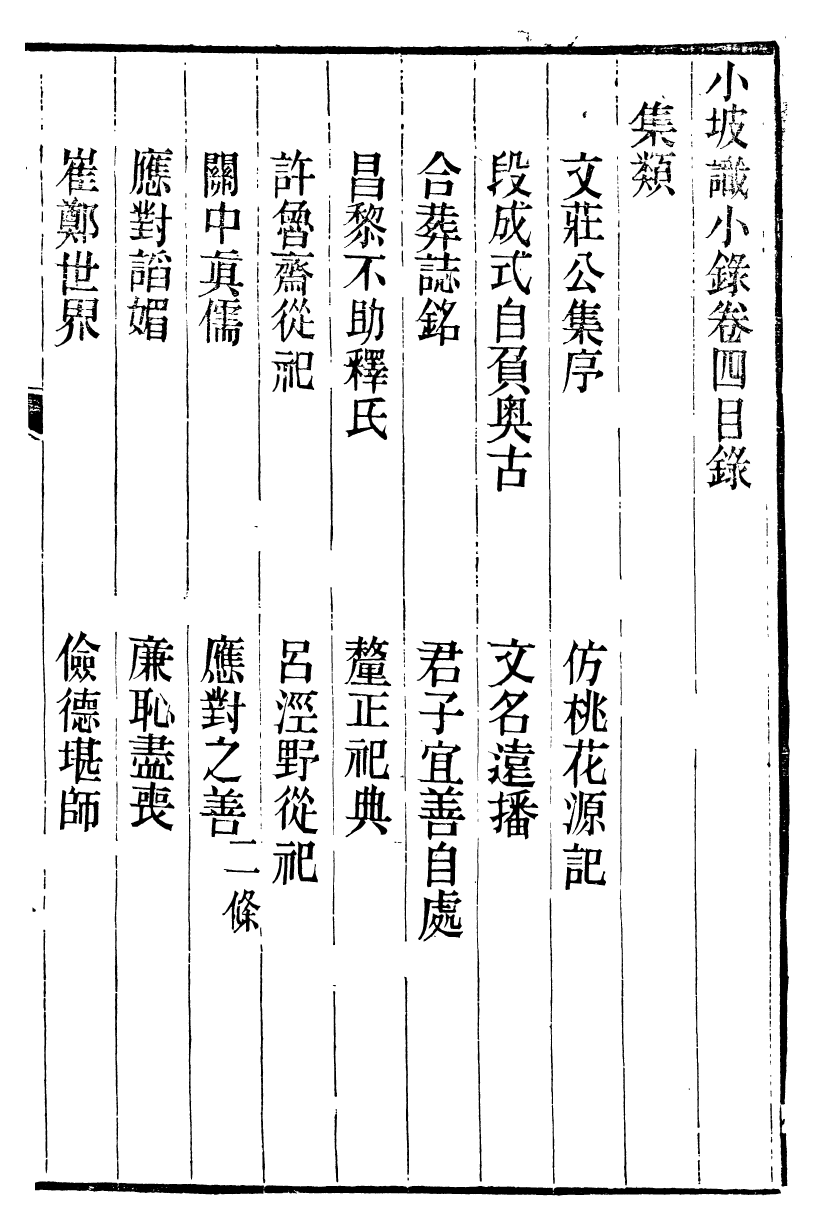 小坡識小錄卷四目錄
集類
文莊公集序　仿桃花源記
段成式自負奧古　文名遠播
合葬誌銘　君子宜善自處
昌黎不助釋氏　釐正祀典
許魯齋從祀　呂涇野從祀
關中真儒　應對之善二條
應對謟媚　廉恥盡喪
崔鄭世界　儉德堪師